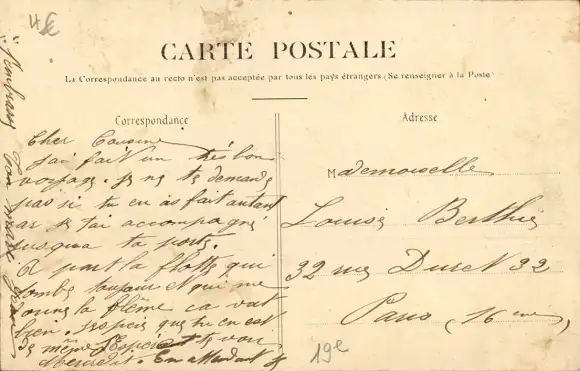 4€
CARTE POSTALE
La Correspondance au recto n'est pas acceptée par tous les pays étrangers (Se renseigner à la Poste)
Correspondance
Cher Cousine
J'ai fait un très bon
voyage. Je ne te demande
pas si tu en as fait autant
car je t'ai accompagné
jusqua ta porte.
A part la flotte qui
tombe toujours et qui me
donne la flême ca vat
bien. J'espère que tu en est
de même J'espère te voir
Mercredi. En attendant je
t'embrasse Ton
Adresse
Mademoiselle
Louise Berthie
32 rue Duret 32
Paris (16 eme)
19e